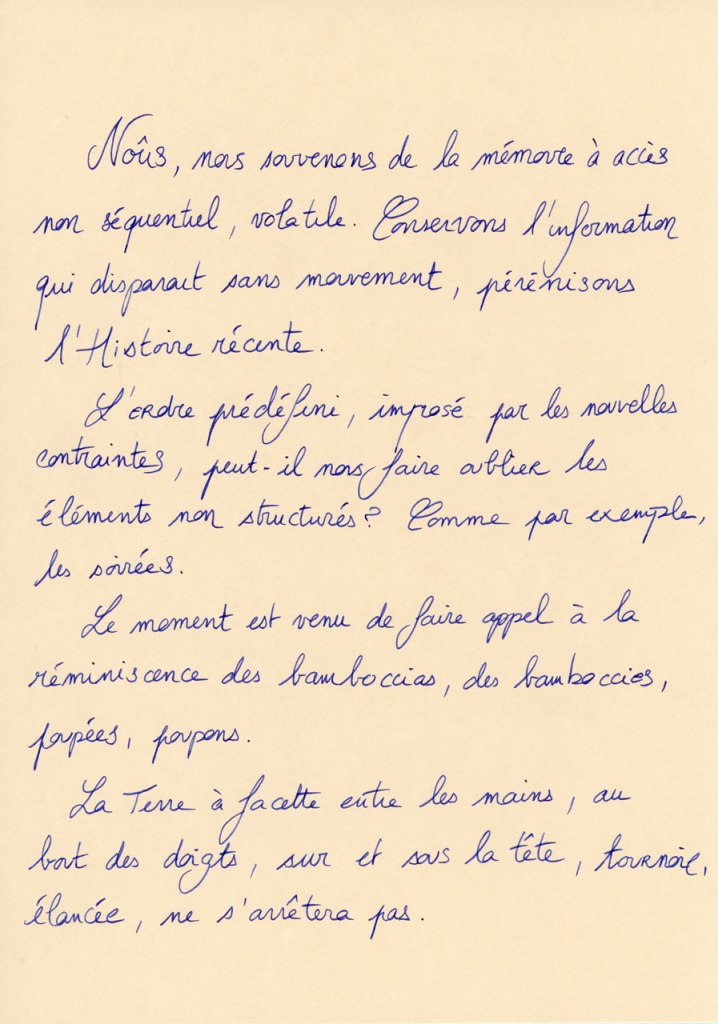 Noûs, nous souvenons de la mémoire à accès
non séquentiel, volatile. Conservons l'information
qui disparait sans mouvement, pérénisons
l'Histoire récente.
L'ordre prédéfini, imposé par les nouvelles
contraintes, peut-il nous faire oublier les
éléments non structurés? Comme par exemple,
les soirées.
Le moment est venu de faire appel à la
réminiscence des bamboccias, des bamboccies,
poupées, poupons.
La Terre à facette entre les mains, au
bout des doigts, sur et sous la tête, tournoie,
élancée, ne s'arrêtera pas.